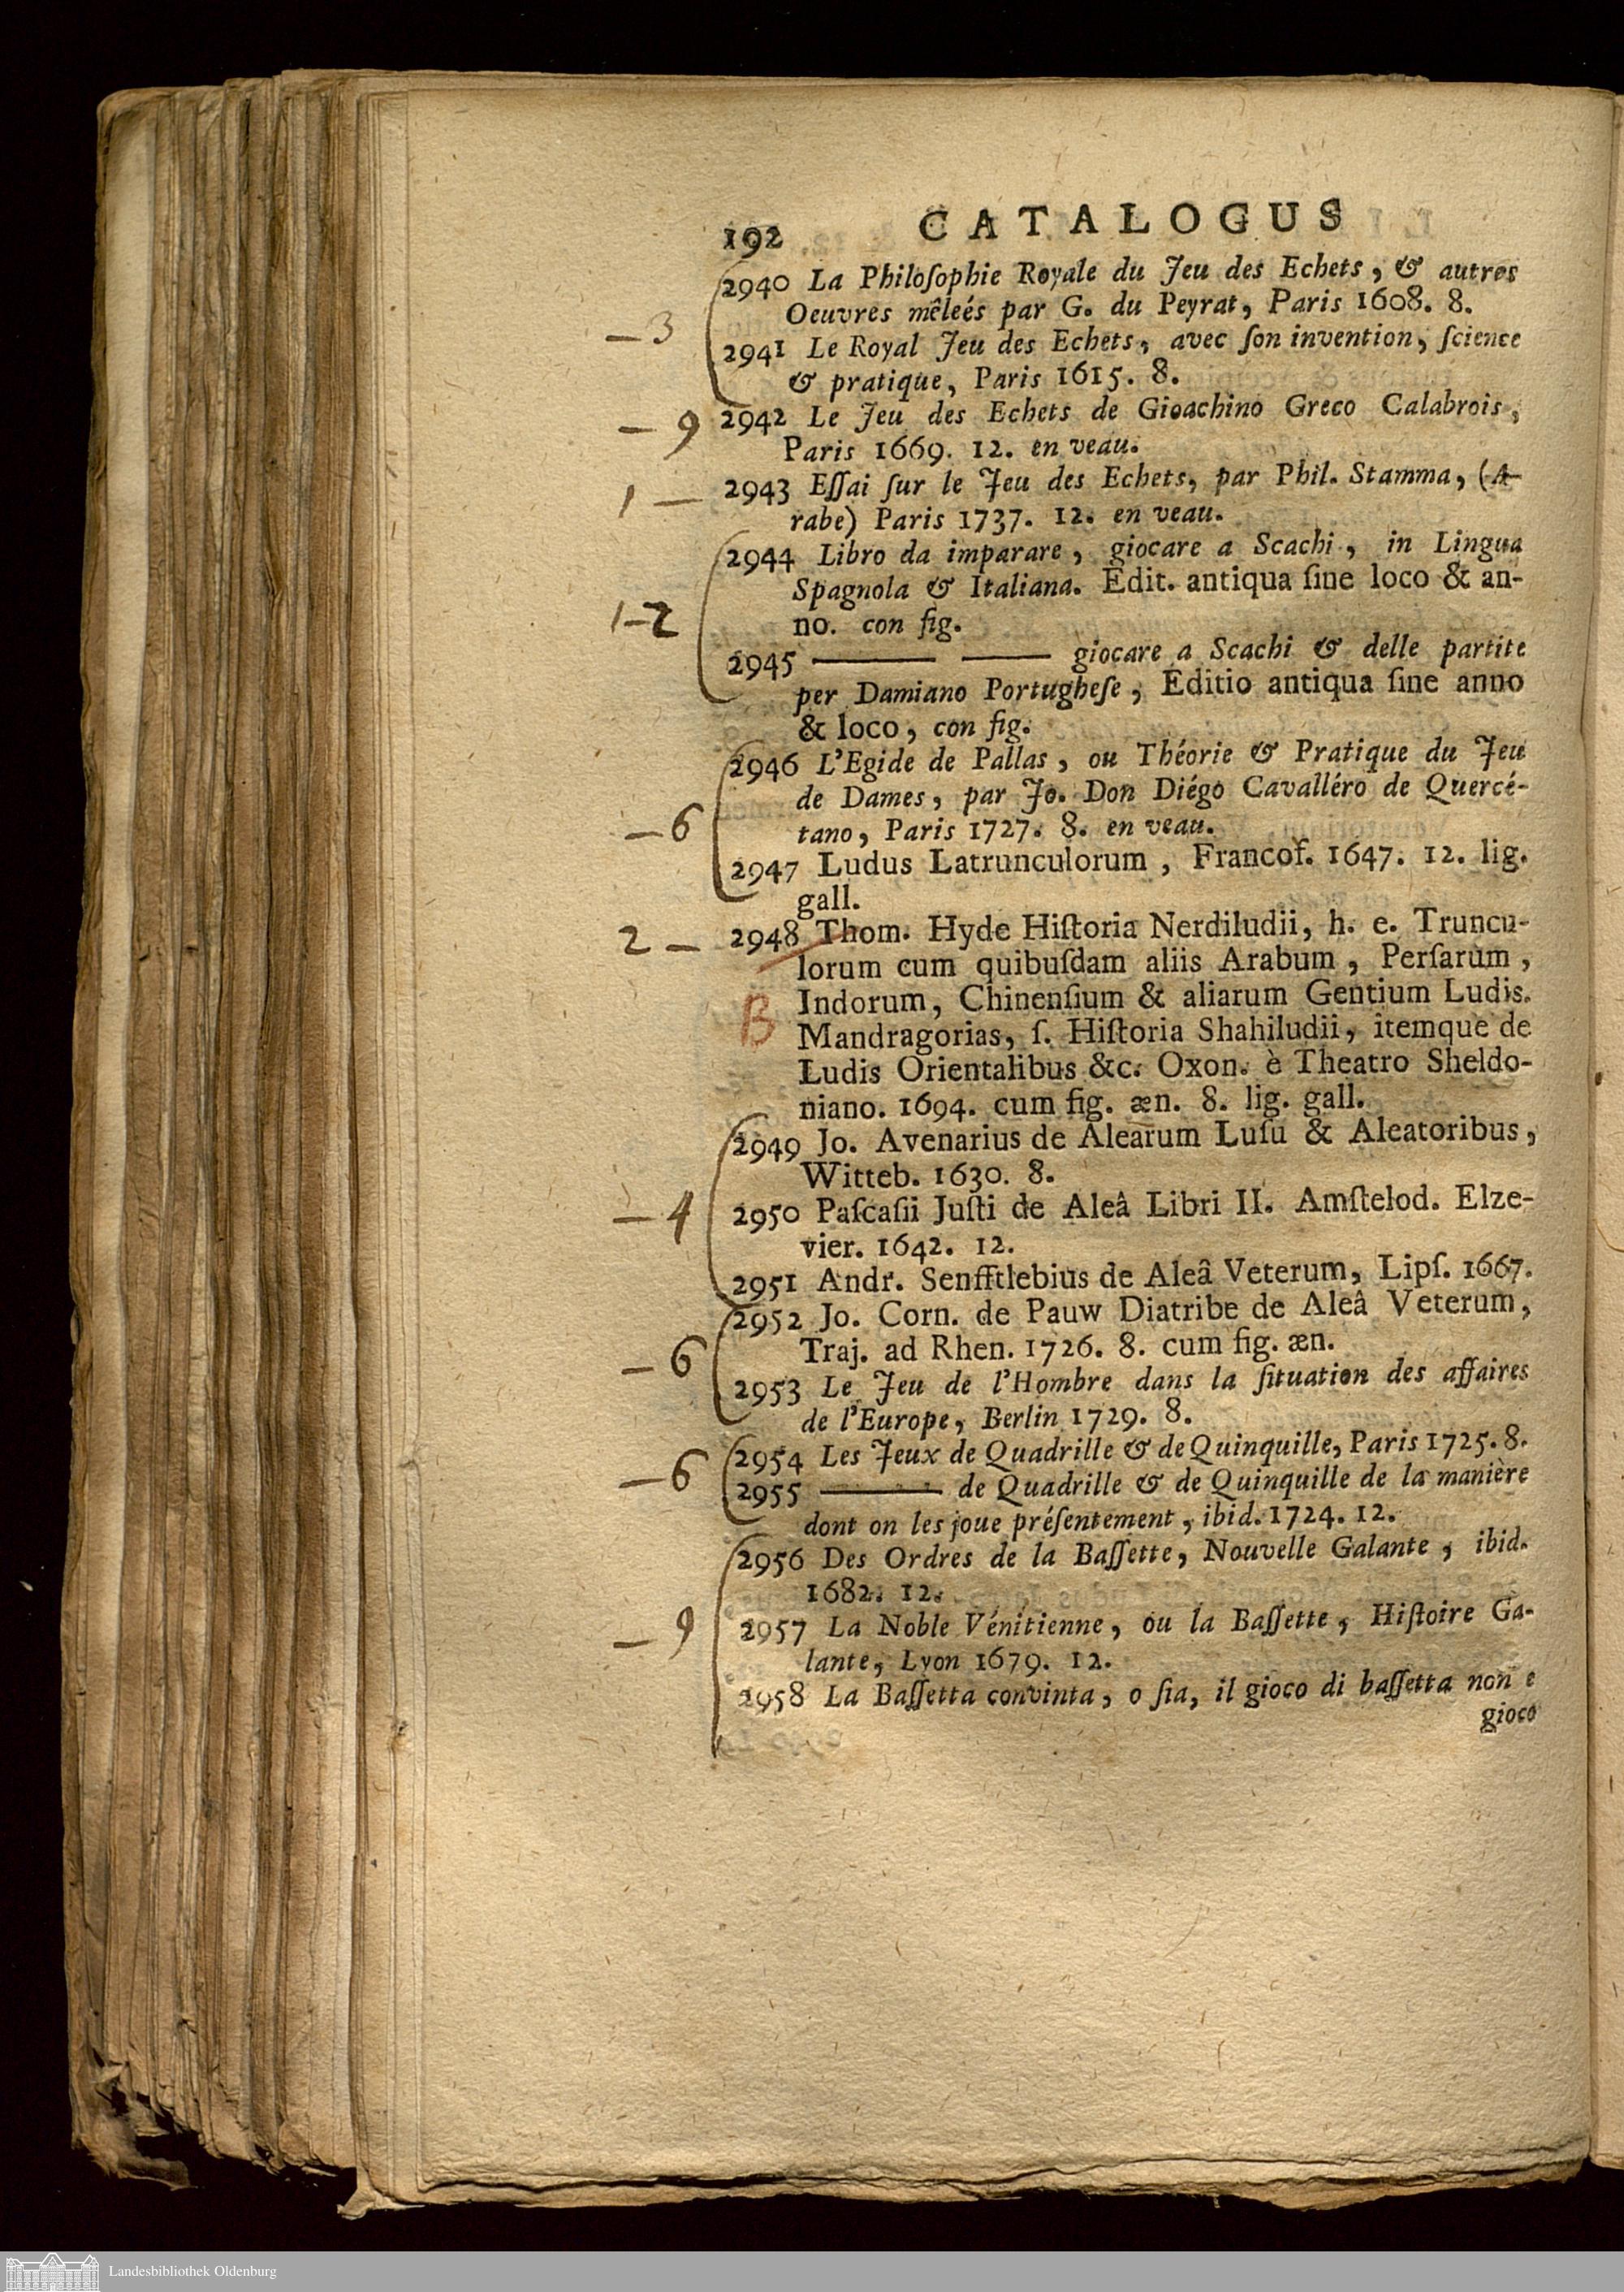 192 CATALOGUS
2940 La Philoſophie Royale du Jeu des Echets, & autres
Oeuvres mêleés par G. du Peyrat, Paris 1608. 8.
— 3
2941 Le Royal Jeu des Echets, avec ſon invention, ſcience
& pratique, Paris 1615. 8.
— 9 2942 Le Jeu des Echets de Gioachino Greco Calabrois,
Paris 1669. 12. en veau.
1 — 2943 Eſſai ſur le Jeu des Echets, par Phil. Stamma, (A-
rabe) Paris 1737. 12. en veau.
2944 Libro da imparare, giocare a Scachi, in Lingua
Spagnola & Italiana. Edit. antiqua ſine loco & an-
1-2 no. con fig.
2945 —— —— giocare a Scachi & delle partite
per Damiano Portugheſe, Editio antiqua ſine anno
& loco, con fig.
2946 L'Egide de Pallas, ou Théorie & Pratique du Jeu
de Dames, par Jo. Don Diégo Cavalléro de Quercé-
— 6 tano, Paris 1727. 8. en veau.
2947 Ludus Latrunculorum, Francof. 1647. 12. lig.
gall.
2 — 2948 Thom. Hyde Hiſtoria Nerdiludii, h. e. Truncu-
lorum cum quibuſdam aliis Arabum, Perſarum,
B Indorum, Chinenſium & aliarum Gentium Ludis.
Mandragorias, ſ. Hiſtoria Shahiludii, itemque de
Ludis Orientalibus &c. Oxon. è Theatro Sheldo-
niano. 1694. cum fig. æn. 8. lig. gall.
2949 Jo. Avenarius de Alearum Luſu & Aleatoribus,
Witteb. 1630. 8.
— 4 2950 Paſcaſii Juſti de Aleâ Libri II. Amſtelod. Elze-
vier. 1642. 12.
2951 Andr. Senfftlebius de Aleâ Veterum, Lipſ. 1667.
2952 Jo. Corn. de Pauw Diatribe de Aleâ Veterum,
— 6 Traj. ad Rhen. 1726. 8. cum fig. æn.
2953 Le Jeu de l'Hombre dans la ſituation des affaires
de l'Europe, Berlin 1729. 8.
2954 Les Jeux de Quadrille & de Quinquille, Paris 1725. 8.
— 6 2955 —— de Quadrille & de Quinquille de la manière
dont on les joue préſentement, ibid. 1724. 12.
2956 Des Ordres de la Baſſette, Nouvelle Galante, ibid.
1682. 12.
— 9 2957 La Noble Vénitienne, ou la Baſſette, Hiſtoire Ga-
lante, Lyon 1679. 12.
2958 La Baſſetta convinta, o ſia, il gioco di baſſetta non e
gioco
Landesbibliothek Oldenburg